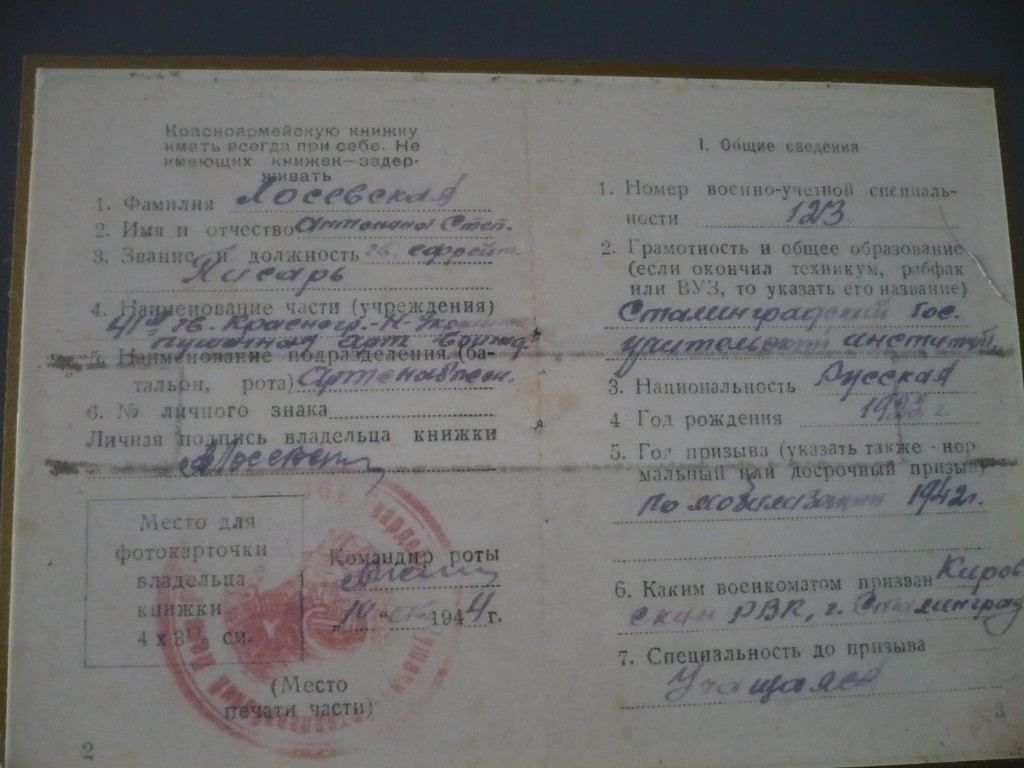 Красноармейскую книжку
иметь всегда при себе. Не
имеющих книжек—задер-
живать
1. Фамилия Лосевская
2. Имя и отчество Антонина Степ.
3. Звание и должность гв. ефрейт.
Писарь
4. Наименование части (учреждения)
41ая гв. Красного.-К-
пушечная арт бригад.
5. Наименование подразделения (ба-
тальон, рота)
6. № личного знака
Личная подпись владельца книжки
Место для
фотокарточки
владельца
книжки
4 х 3½ см.
Командир роты
1944 г.
(Место
печати части)
2
I. Общие сведения
1. Номер военно-учетной специаль-
ности 123
2. Грамотность и общее образование
(если окончил техникум, рабфак
или ВУЗ, то указать его название)
Сталинградский Гос.
учительский институт.
3. Национальность Русская
4 Год рождения 1922 г.
5. Год призыва (указать также - нор-
мальный или досрочный призыв)
По мобилизации 1942г.
6. Каким военкоматом призван Киров-
ским РВК, г. Сталинград
7. Специальность до призыва
Учащаяся
3